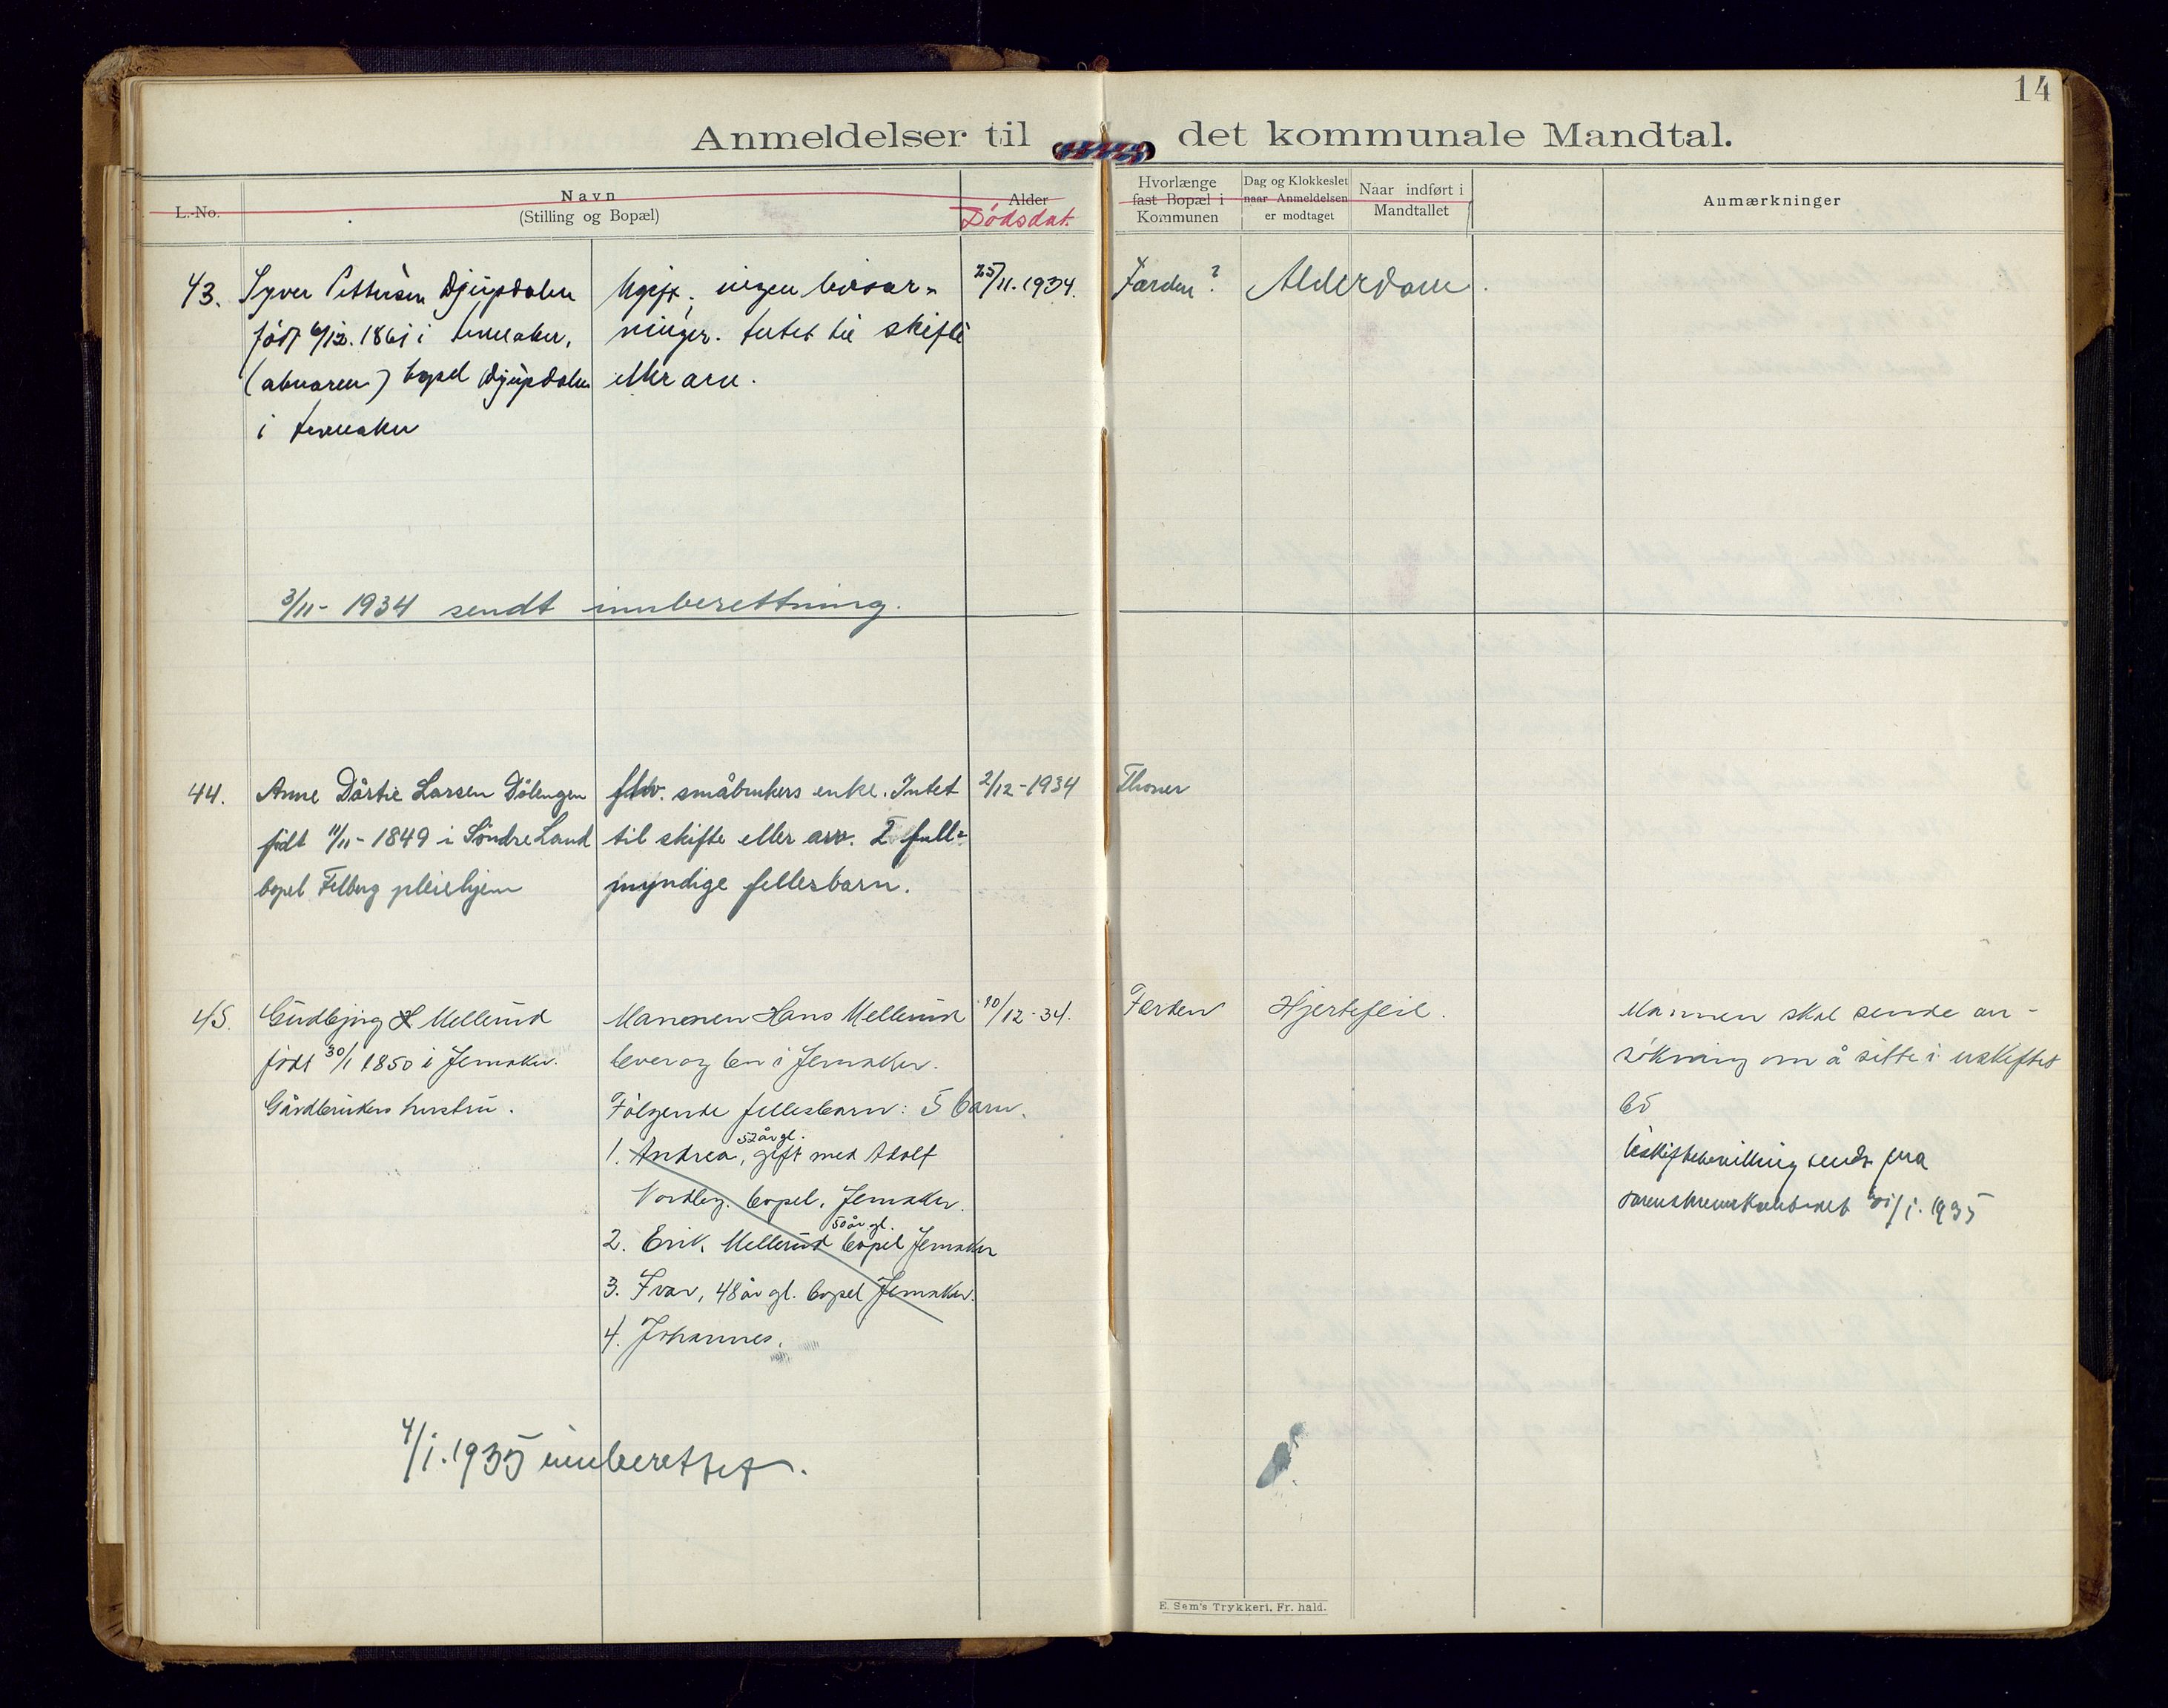 14
Anmeldelser til det kommunale Mandtal.
L.-No.
Navn
(Stilling og Bopæl)
Alder
Dødsdat.
Hvorlænge
fast Bopæl i
Kommunen
Dag og Klokkeslet
naar Anmeldelsen
er modtaget
Naar indført i
Mandtallet
Anmærkninger
43.
Syver Pettersen Djupdalen
født 6/12. 1861 i Jevnaker,
bopel Djupdalen
i Jevnaker
Ugift, ingen livsar-
vinger. Intet til skifte
eller arv.
25/11. 1934.
Førden?
Alderdom.
3/11- 1934 sendt innberettning.
44.
Anne Dårtie Larsen Dölengen
født 11/11- 1849 i Söndre Land
bopel Felberg pleiehjem
fhv. småbrukers enke. Intet
til skifte eller arv. 2 full-
myndige fellesbarn.
2/12-1934
Thoner
45.
Gudbjørg H Mellerud
født 30/1 1850 i Jevnaker.
Gårdbrukers hustru.
Mannen Hans Mellerud
lever og bor i Jevnaker.
Følgende fellesbarn: 5 barn.
52 år gl.
1. Andrea, gift med Adolf
Nordby. bopel. Jevnaker.
50 år gl.
2. Erik. Mellerud bopel Jevnaker
3. Ivar, 48 år gl. bopel Jevnaker.
4. Johannes.
10/12-34.
Førden
Hjertefeil.
Mannen skal sende an-
søkning om å sitte i uskiftet
bo
Uskiftebevilling sendt fra
sorenskriverkontoret /1. 1935
4/1. 1935 innberettet.
E. Sem's Trykkeri, Fr. hald.